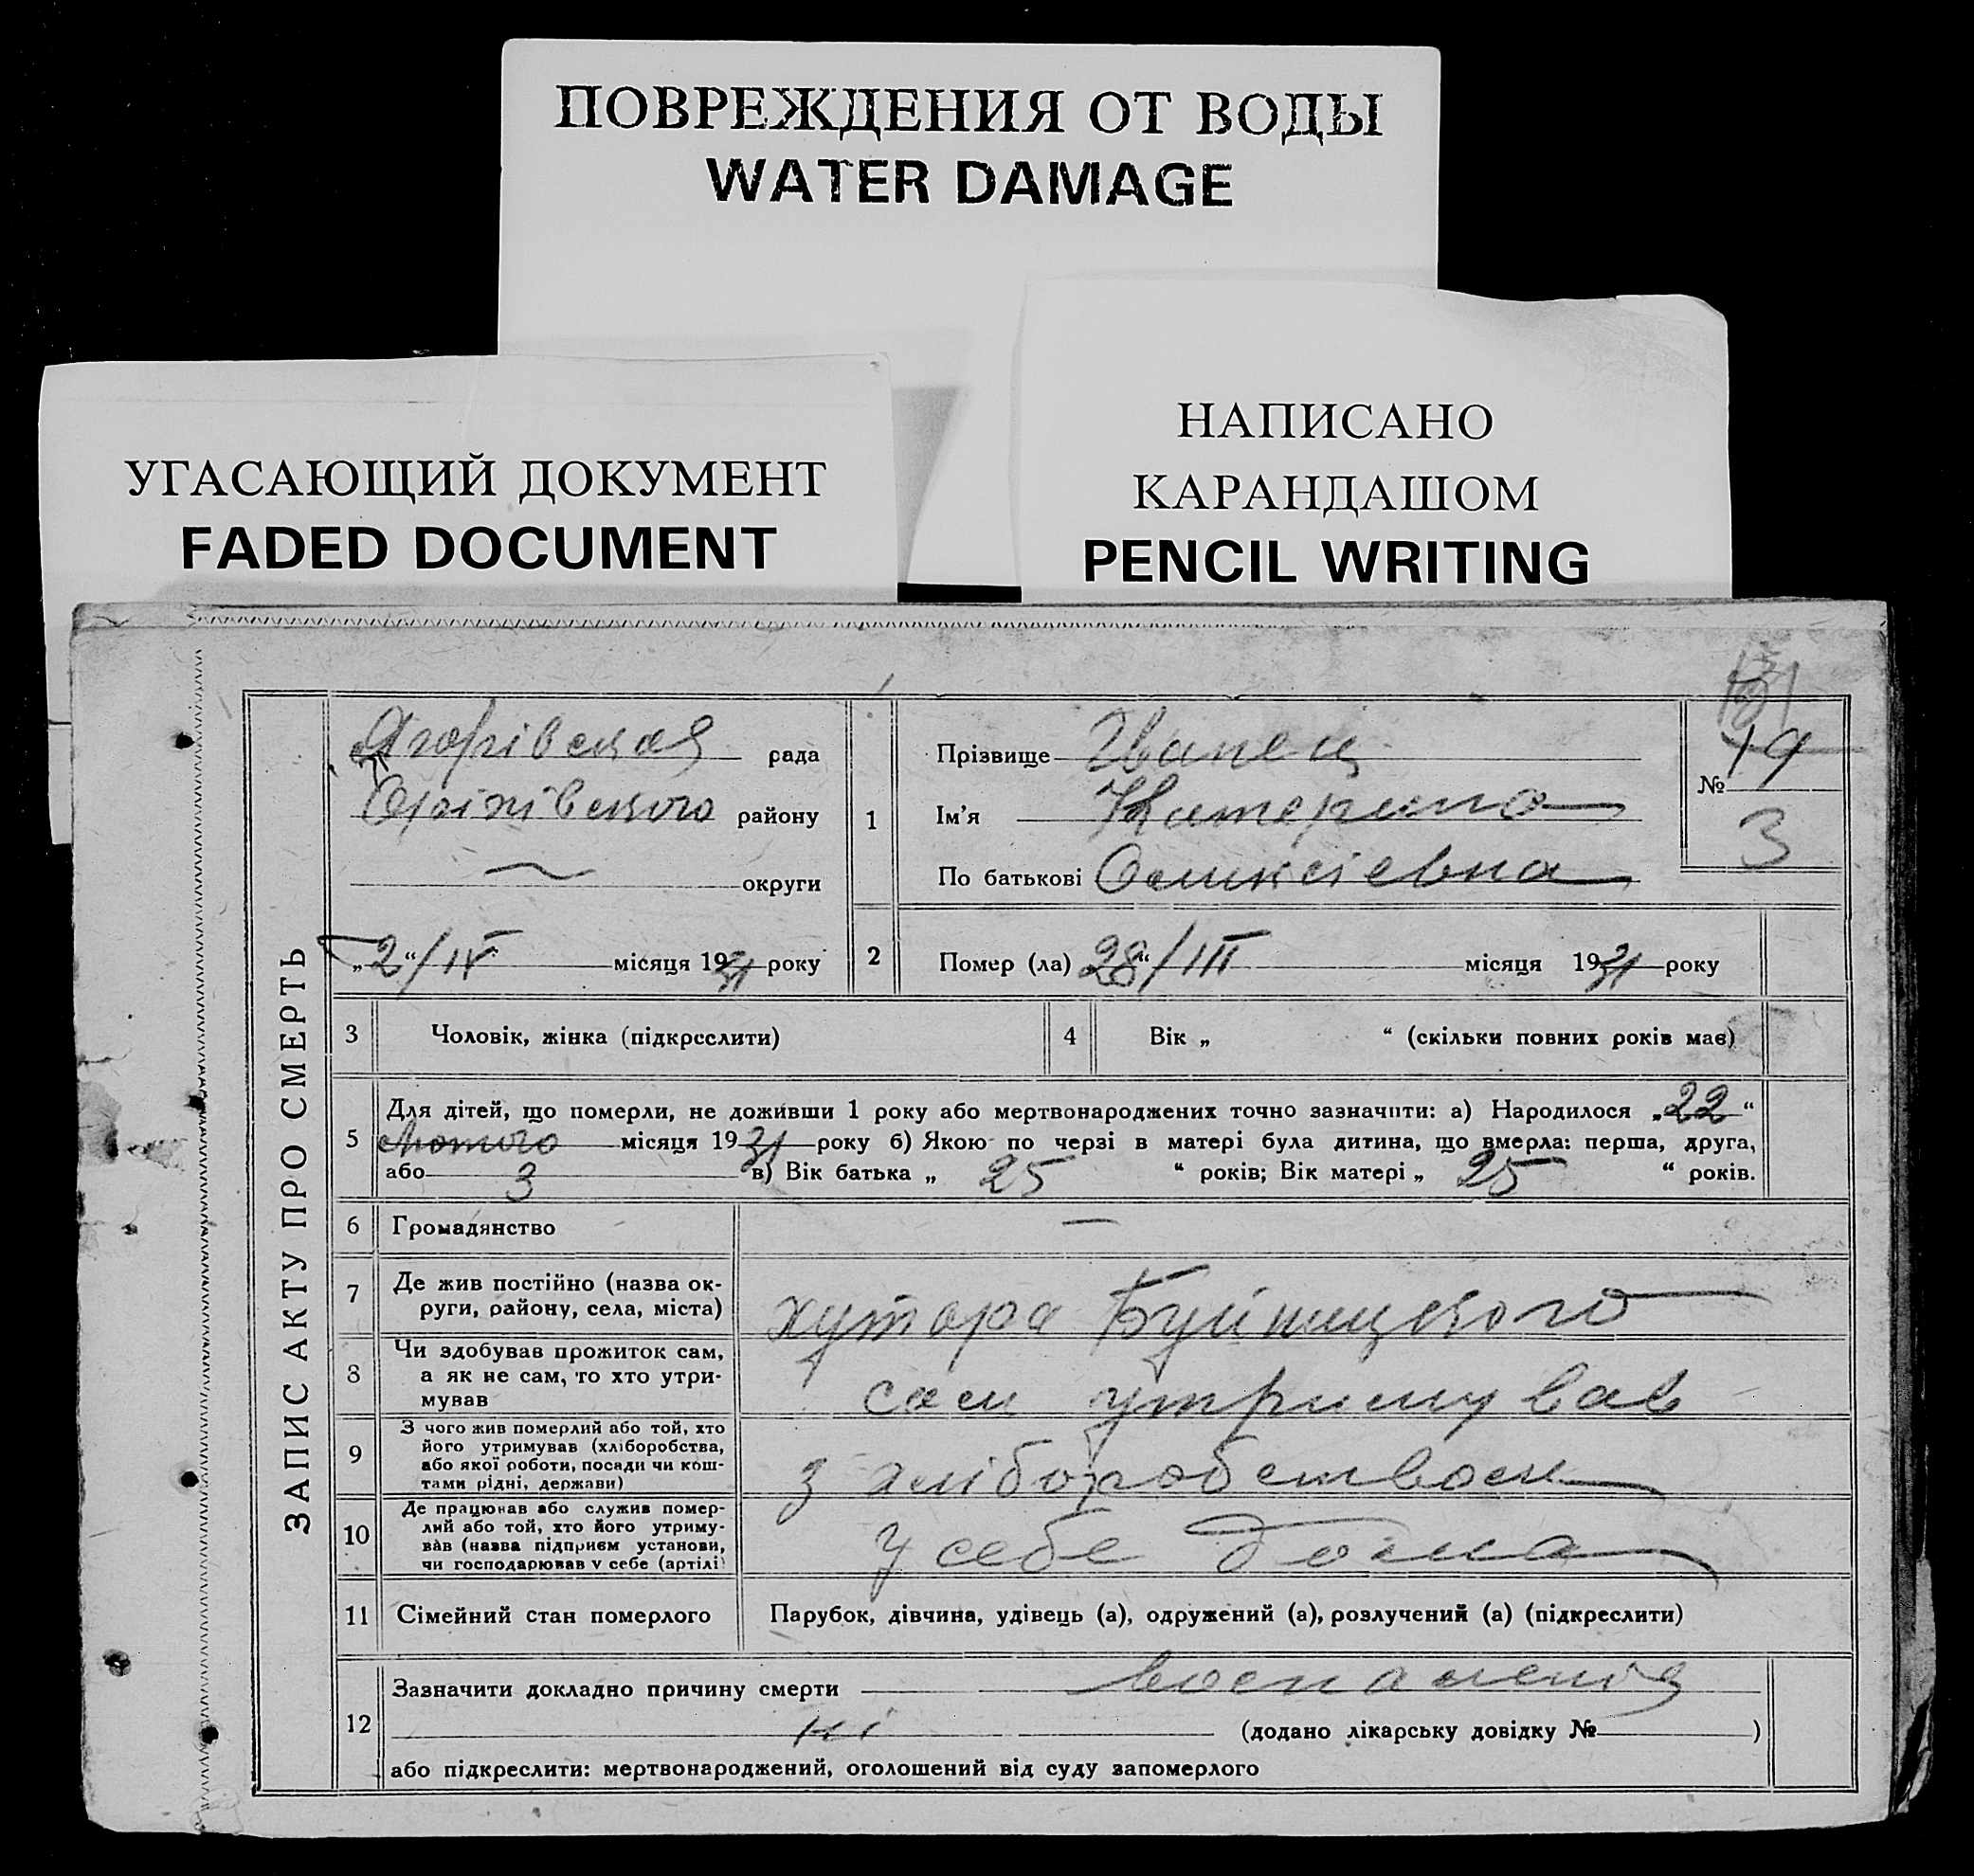 ПОВРЕЖДЕНИЯ ОТ ВОДЫ
WATER DAMAGE
УГАСАЮЩИЙ ДОКУМЕНТ
FADED DOCUMENT
НАПИСАНО
КАРАНДАШОМ
PENCIL WRITING
ЗАПИС АКТУ ПРО СМЕРТЬ
рада
району
округи
„2“/IV місяця 1931 року
1
Прізвище Іванец
Ім'я Катерина
По батькові Оликсіевна
№ 19
3
2
Помер (ла) „28“/III місяця 1931 року
3 Чоловік, жінка (підкреслити)
4 Вік „ “ (скільки повних років має)
5 Для дітей, що померли, не доживши 1 року або мертвонароджених точно зазначити: а) Народилося „22“
Лютого місяця 1931 року б) Якою по черзі в матері була дитина, що вмерла: перша, друга,
або 3 в) Вік батька „ 25 “ років; Вік матері „ 25 “ років.
6 Громадянство —
7 Де жив постійно (назва ок-
руги, району, села, міста)
хутора
8 Чи здобував прожиток сам,
а як не сам, то хто утри-
мував
сам утримував
9 З чого жив померлий або той, хто
його утримував (хліборобства,
або якої роботи, посади чи кош-
тами рідні, держави)
з хліборобством
10 Де працював або служив помер-
лий або той, хто його утриму-
вав (назва підприєм установи,
чи господарював у себе (артілі)
у себе дома
11 Сімейний стан померлого
Парубок, дівчина, удівець (а), одружений (а), розлучений (а) (підкреслити)
12 Зазначити докладно причину смерти воспаленія
ні (додано лікарську довідку № )
або підкреслити: мертвонароджений, оголошений від суду запомерлого